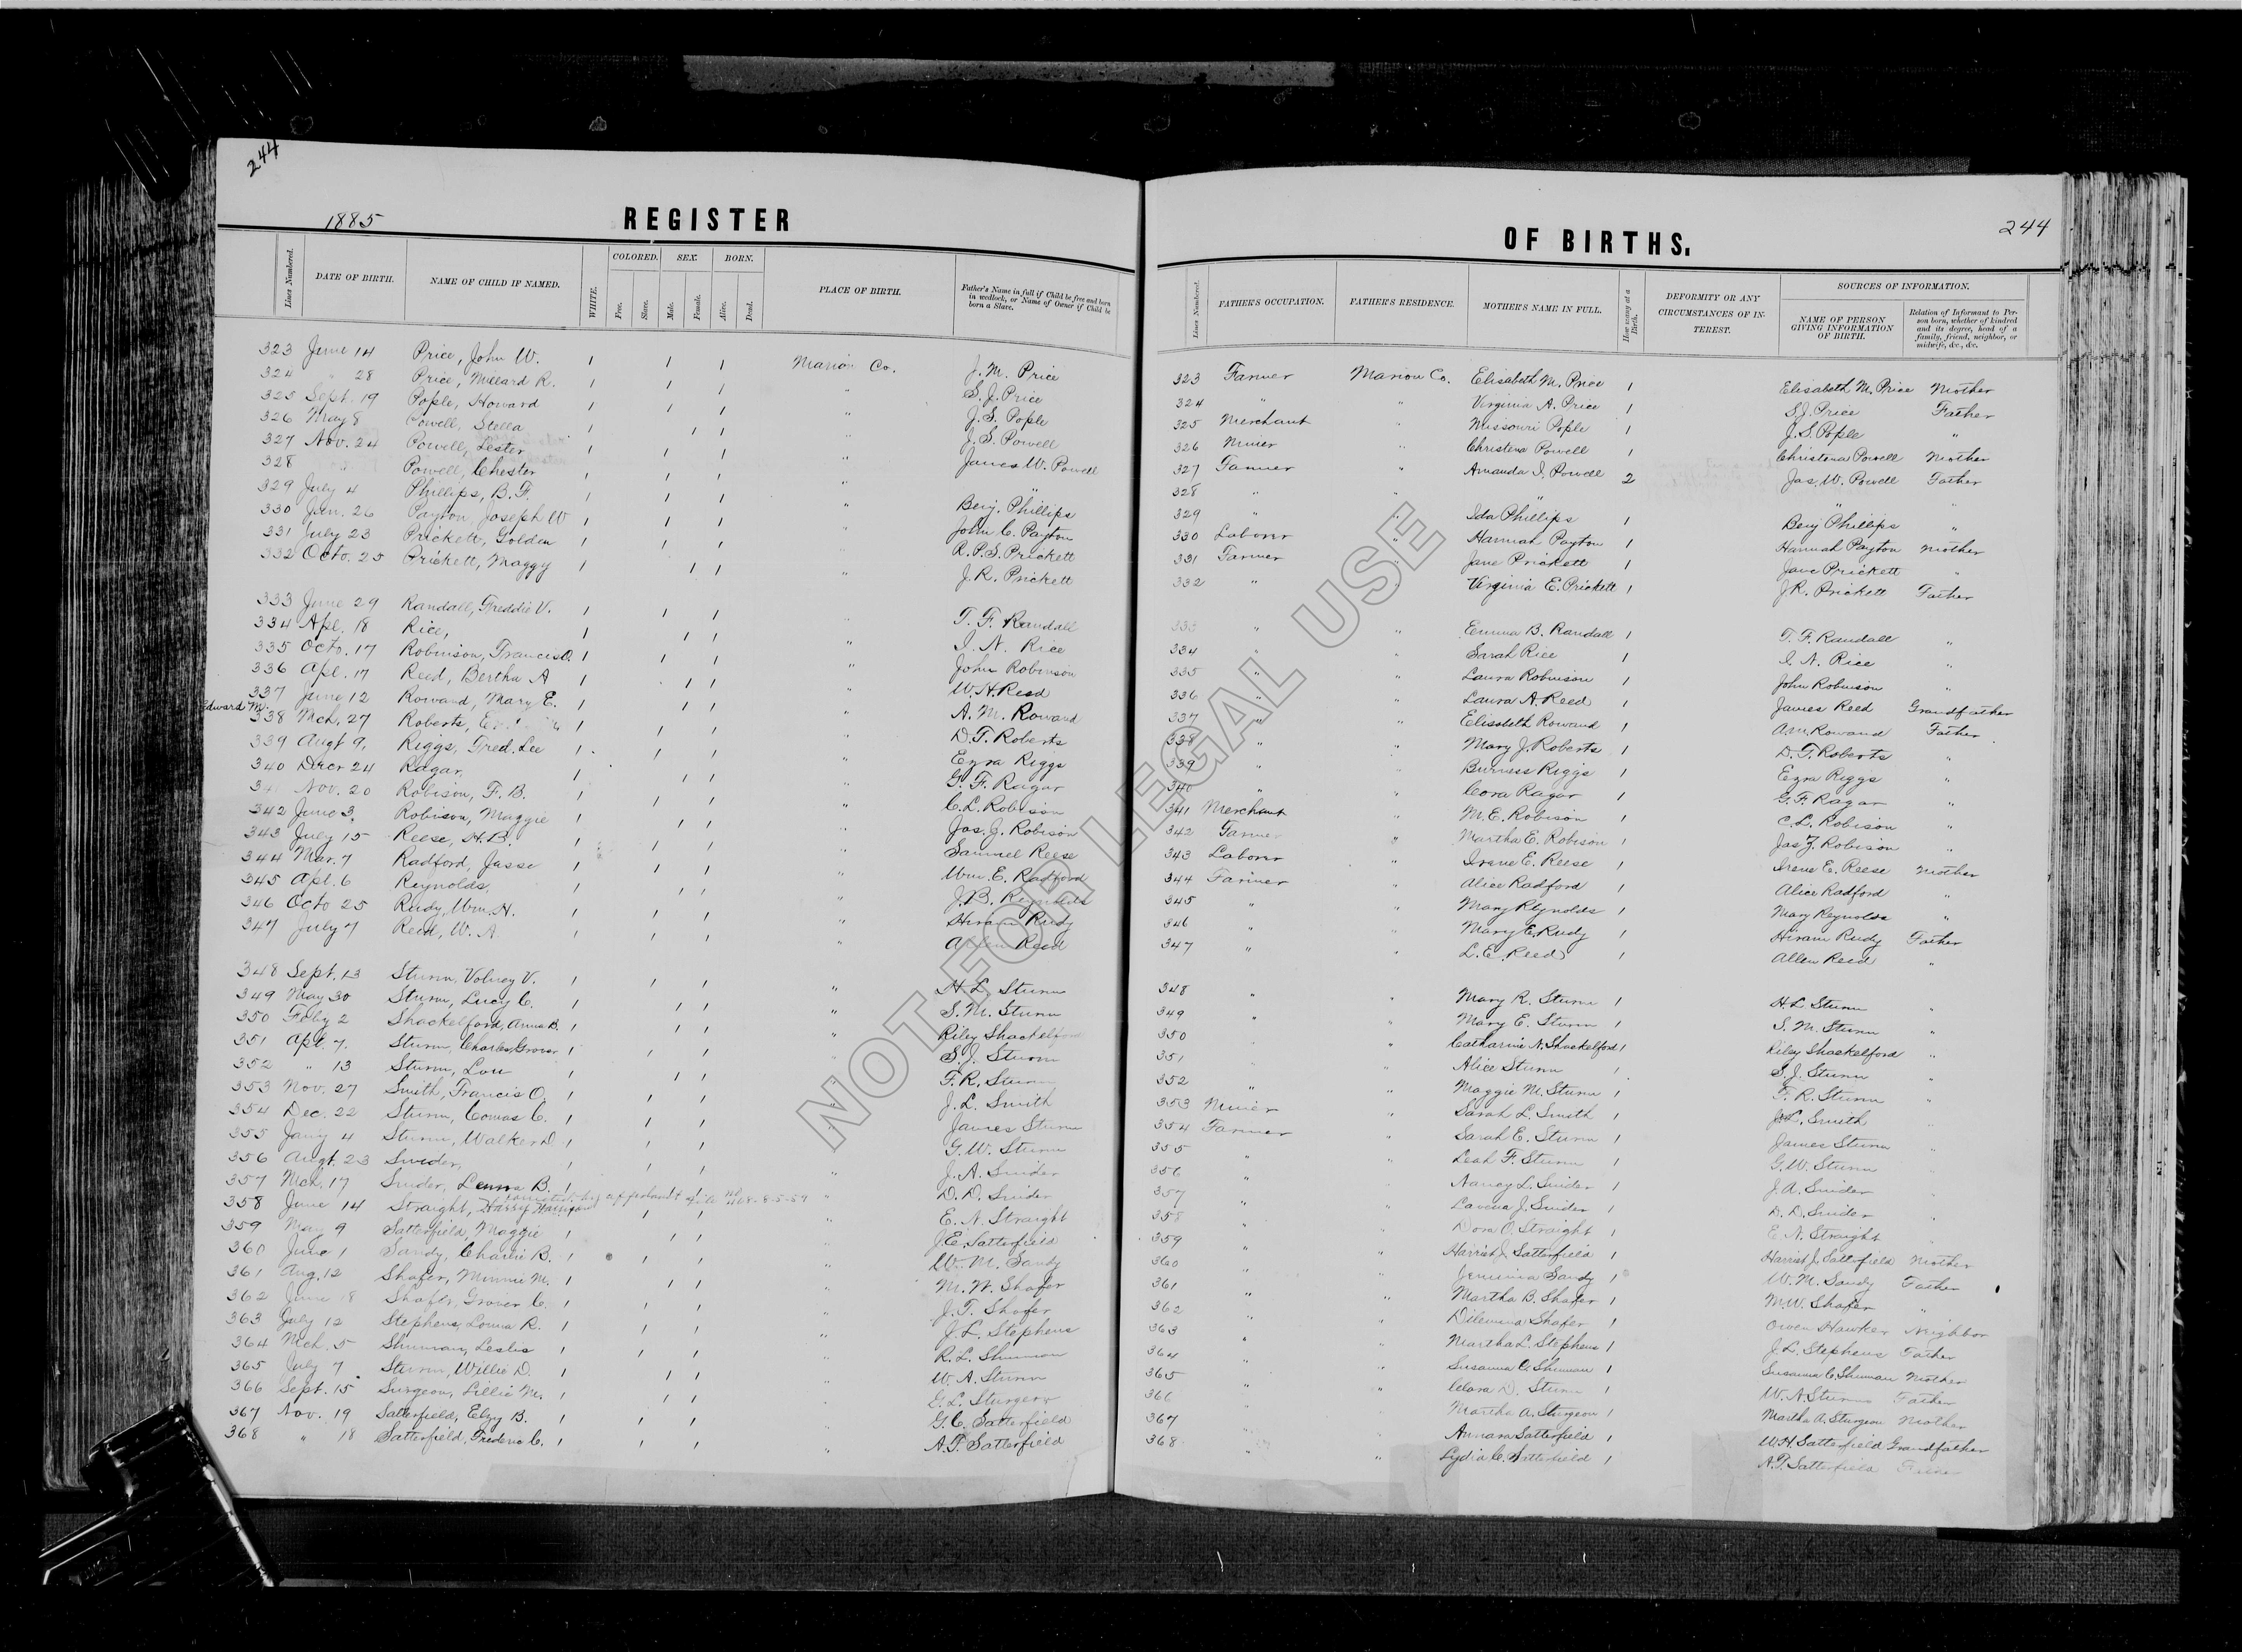 244
1885
REGISTER
OF BIRTHS.
244
Lines Numbered. DATE OF BIRTH. NAME OF CHILD IF NAMED. WHITE. COLORED. Free. Slave. SEX. Male. Female. BORN. Alive. Dead. PLACE OF BIRTH. Father's Name in full if Child be free and born in wedlock, or Name of Owner if Child be born a Slave.
Lines Numbered. FATHER'S OCCUPATION. FATHER'S RESIDENCE. MOTHER'S NAME IN FULL. How many at a Birth. DEFORMITY OR ANY CIRCUMSTANCES OF INTEREST. SOURCES OF INFORMATION. NAME OF PERSON GIVING INFORMATION OF BIRTH. Relation of Informant to Person born, whether of kindred and its degree, head of a family, friend, neighbor, or midwife, &c., &c.
323 June 14 Price, John W. 1 1 1 Marion Co. J. M. Price
324 " 28 Price, Millard R. 1 1 1 " S. J. Price
325 Sept. 19 Pople, Howard 1 1 1 " J. S. Pople
326 May 8 Powell, Stella 1 1 1 " J. S. Powell
327 Nov. 24 Powell, Lester 1 1 1 " James W. Powell
328 Powell, Chester 1 1 1 " "
329 July 4 Phillips, B. F. 1 1 1 " Benj. Phillips
330 Jan. 26 Payton, Joseph W 1 1 1 " John C. Payton
331 July 23 Prickett, Golden 1 1 1 " R. P. S. Prickett
332 Octo. 25 Prickett, Maggy 1 1 1 " J. R. Prickett
333 June 29 Randall, Freddie V. 1 1 1 " T. F. Randall
334 Apl. 18 Rice, 1 1 1 " I. N. Rice
335 Octo. 17 Robinson, Francis O. 1 1 1 " John Robinson
336 Apl. 17 Reed, Bertha A 1 1 1 " W. H. Reed
337 June 12 Rowand, Mary E. 1 1 1 " A. M. Rowand
Edward M.
338 Mch. 27 Roberts, 1 1 1 " D. T. Roberts
339 Augt 9. Riggs, Fred. Lee 1 1 1 " Ezra Riggs
340 Decr 24 Ragar, 1 1 1 " G. F. Ragar
341 Nov. 20 Robison, F. B. 1 1 1 " C. L. Robison
342 June 3. Robison, Maggie 1 1 1 " Jas. J. Robison
343 July 15 Reese, H. B. 1 1 1 " Samuel Reese
344 Mar. 7 Radford, Jasse 1 1 1 " Wm. E. Radford
345 Apl. 6 Reynolds, 1 1 1 " J. B. Reynolds
346 Octo 25 Rudy, Wm. H. 1 1 1 " Hiram Rudy
347 July 7 Reed, W. A. 1 1 1 " Allen Reed
348 Sept. 13 Sturm, Volney V. 1 1 1 " H. L. Sturm
349 May 30 Sturm, Lucy C. 1 1 1 " S. M. Sturm
350 Feby 2 Shackelford, Anna B. 1 1 1 " Riley Shackelford
351 Apl. 7. Sturm, Charles Grover 1 1 1 " S. J. Sturm
352 " 13 Sturm, Lou 1 1 1 " F. R. Sturm
353 Nov. 27 Smith, Francis O. 1 1 1 " J. L. Smith
354 Dec. 22 Sturm, Comas C. 1 1 1 " James Sturm
355 Jany 4 Sturm, Walker D. 1 1 1 " G. W. Sturm
356 Augt. 23 Snider, 1 1 1 " J. A. Snider
357 Mch. 17 Snider, Lenna B. 1 1 " D. D. Snider
358 June 14 Straight, Harry 1 1 " E. N. Straight
359 May 9 Satterfield, Maggie 1 1 1 " J. E. Satterfield
360 June 1 Sandy, Charlie B. 1 1 1 " W. M. Sandy
361 Aug. 12 Shafer, Minnie M. 1 1 1 " M. W. Shafer
362 June 18 Shafer, Grover C. 1 1 1 " J. T. Shafer
363 July 12 Stephens, Lonna R. 1 1 1 " J. L. Stephens
364 Mch. 5 Shuman, Leslie 1 1 1 " R. L. Shuman
365 July 7 Sturm, Willie D. 1 1 1 " W. A. Sturm
366 Sept. 15 Surgeon, Lillie M. 1 1 1 " G. L. Sturgeon
367 Nov. 19 Satterfield, Elzy B. 1 1 1 " G. C. Satterfield
368 " 18 Satterfield, Frederic C. 1 1 1 " A. T. Satterfield
323 Farmer Marion Co. Elisabeth M. Price 1 Elisabeth M. Price Mother
324 " " Virginia A. Price 1 S. J. Price Father
325 Merchant " Missouri Pople 1 J. S. Pople "
326 Miner Christena Powell 1 Christena Powell Mother
327 Farmer " Amanda J. Powell 2 Jas. W. Powell Father
328 " " " " "
329 " " Ida Phillips 1 Benj Phillips "
330 Laborer " Hannah Payton 1 Hannah Payton Mother
331 Farmer Jane Prickett 1 Jane Prickett "
332 " " Virginia E. Prickett 1 J. R. Prickett Father
333 " " Emma B. Randall 1 T. F. Randall "
334 " " Sarah Rice 1 I. N. Rice "
335 " " Laura Robinson 1 John Robinson "
336 " " Laura A. Reed 1 James Reed Grandfather
337 " " Elisabeth Rowand 1 A. M. Rowand Father
338 " " Mary J. Roberts 1 D. T. Roberts "
339 " " Burness Riggs 1 Ezra Riggs "
340 " " Cora Ragar 1 G. F. Ragar "
341 Merchant " M. E. Robison 1 C. L. Robison "
342 Farmer " Martha E. Robison 1 Jas J. Robison "
343 Laborer " Irene E. Reese 1 Irene E. Reese Mother
344 Farmer " Alice Radford 1 Alice Radford "
345 " " Mary Reynolds 1 Mary Reynolds "
346 " " Mary E. Rudy 1 Hiram Rudy Father
347 " " L. E. Reed 1 Allen Reed "
348 " " Mary R. Sturm 1 H. L. Sturm "
349 " " Mary E. Sturm 1 S. M. Sturm "
350 " Catharine N. Shackelford 1 Riley Shackelford "
351 Alice Sturm 1 S. J. Sturm "
352 " " Maggie M. Sturm 1 F. R. Sturm "
353 Miner " Sarah L. Smith 1 J. L. Smith "
354 Farmer " Sarah E. Sturm 1 James Sturm "
355 " " Leah F. Sturm 1 G. W. Sturm "
356 " " Nancy L. Snider 1 J. A. Snider "
357 " " Lavina J. Snider 1 D. D. Snider "
358 " Dora O. Straight 1 E. N. Straight "
359 " " Harriet J. Satterfield 1 Harriet J. Satterfield Mother
360 " " Jemima Sandy 1 W. M. Sandy Father
361 " " Martha B. Shafer 1 M. W. Shafer "
362 " " Dilemma Shafer 1 Owen Hawker Neighbor
363 " " Martha L. Stephens 1 J. L. Stephens Father
364 " " Susanna C. Shuman 1 Susanna C. Shuman Mother
365 " " Clara D. Sturm 1 W. A. Sturm Father
366 " Martha A. Sturgeon 1 Martha A. Sturgeon Mother
367 " Satterfield 1 W. H. Satterfield Grandfather
368 " " Lydia C. Satterfield 1 A. T. Satterfield Father
NOT FOR LEGAL USE